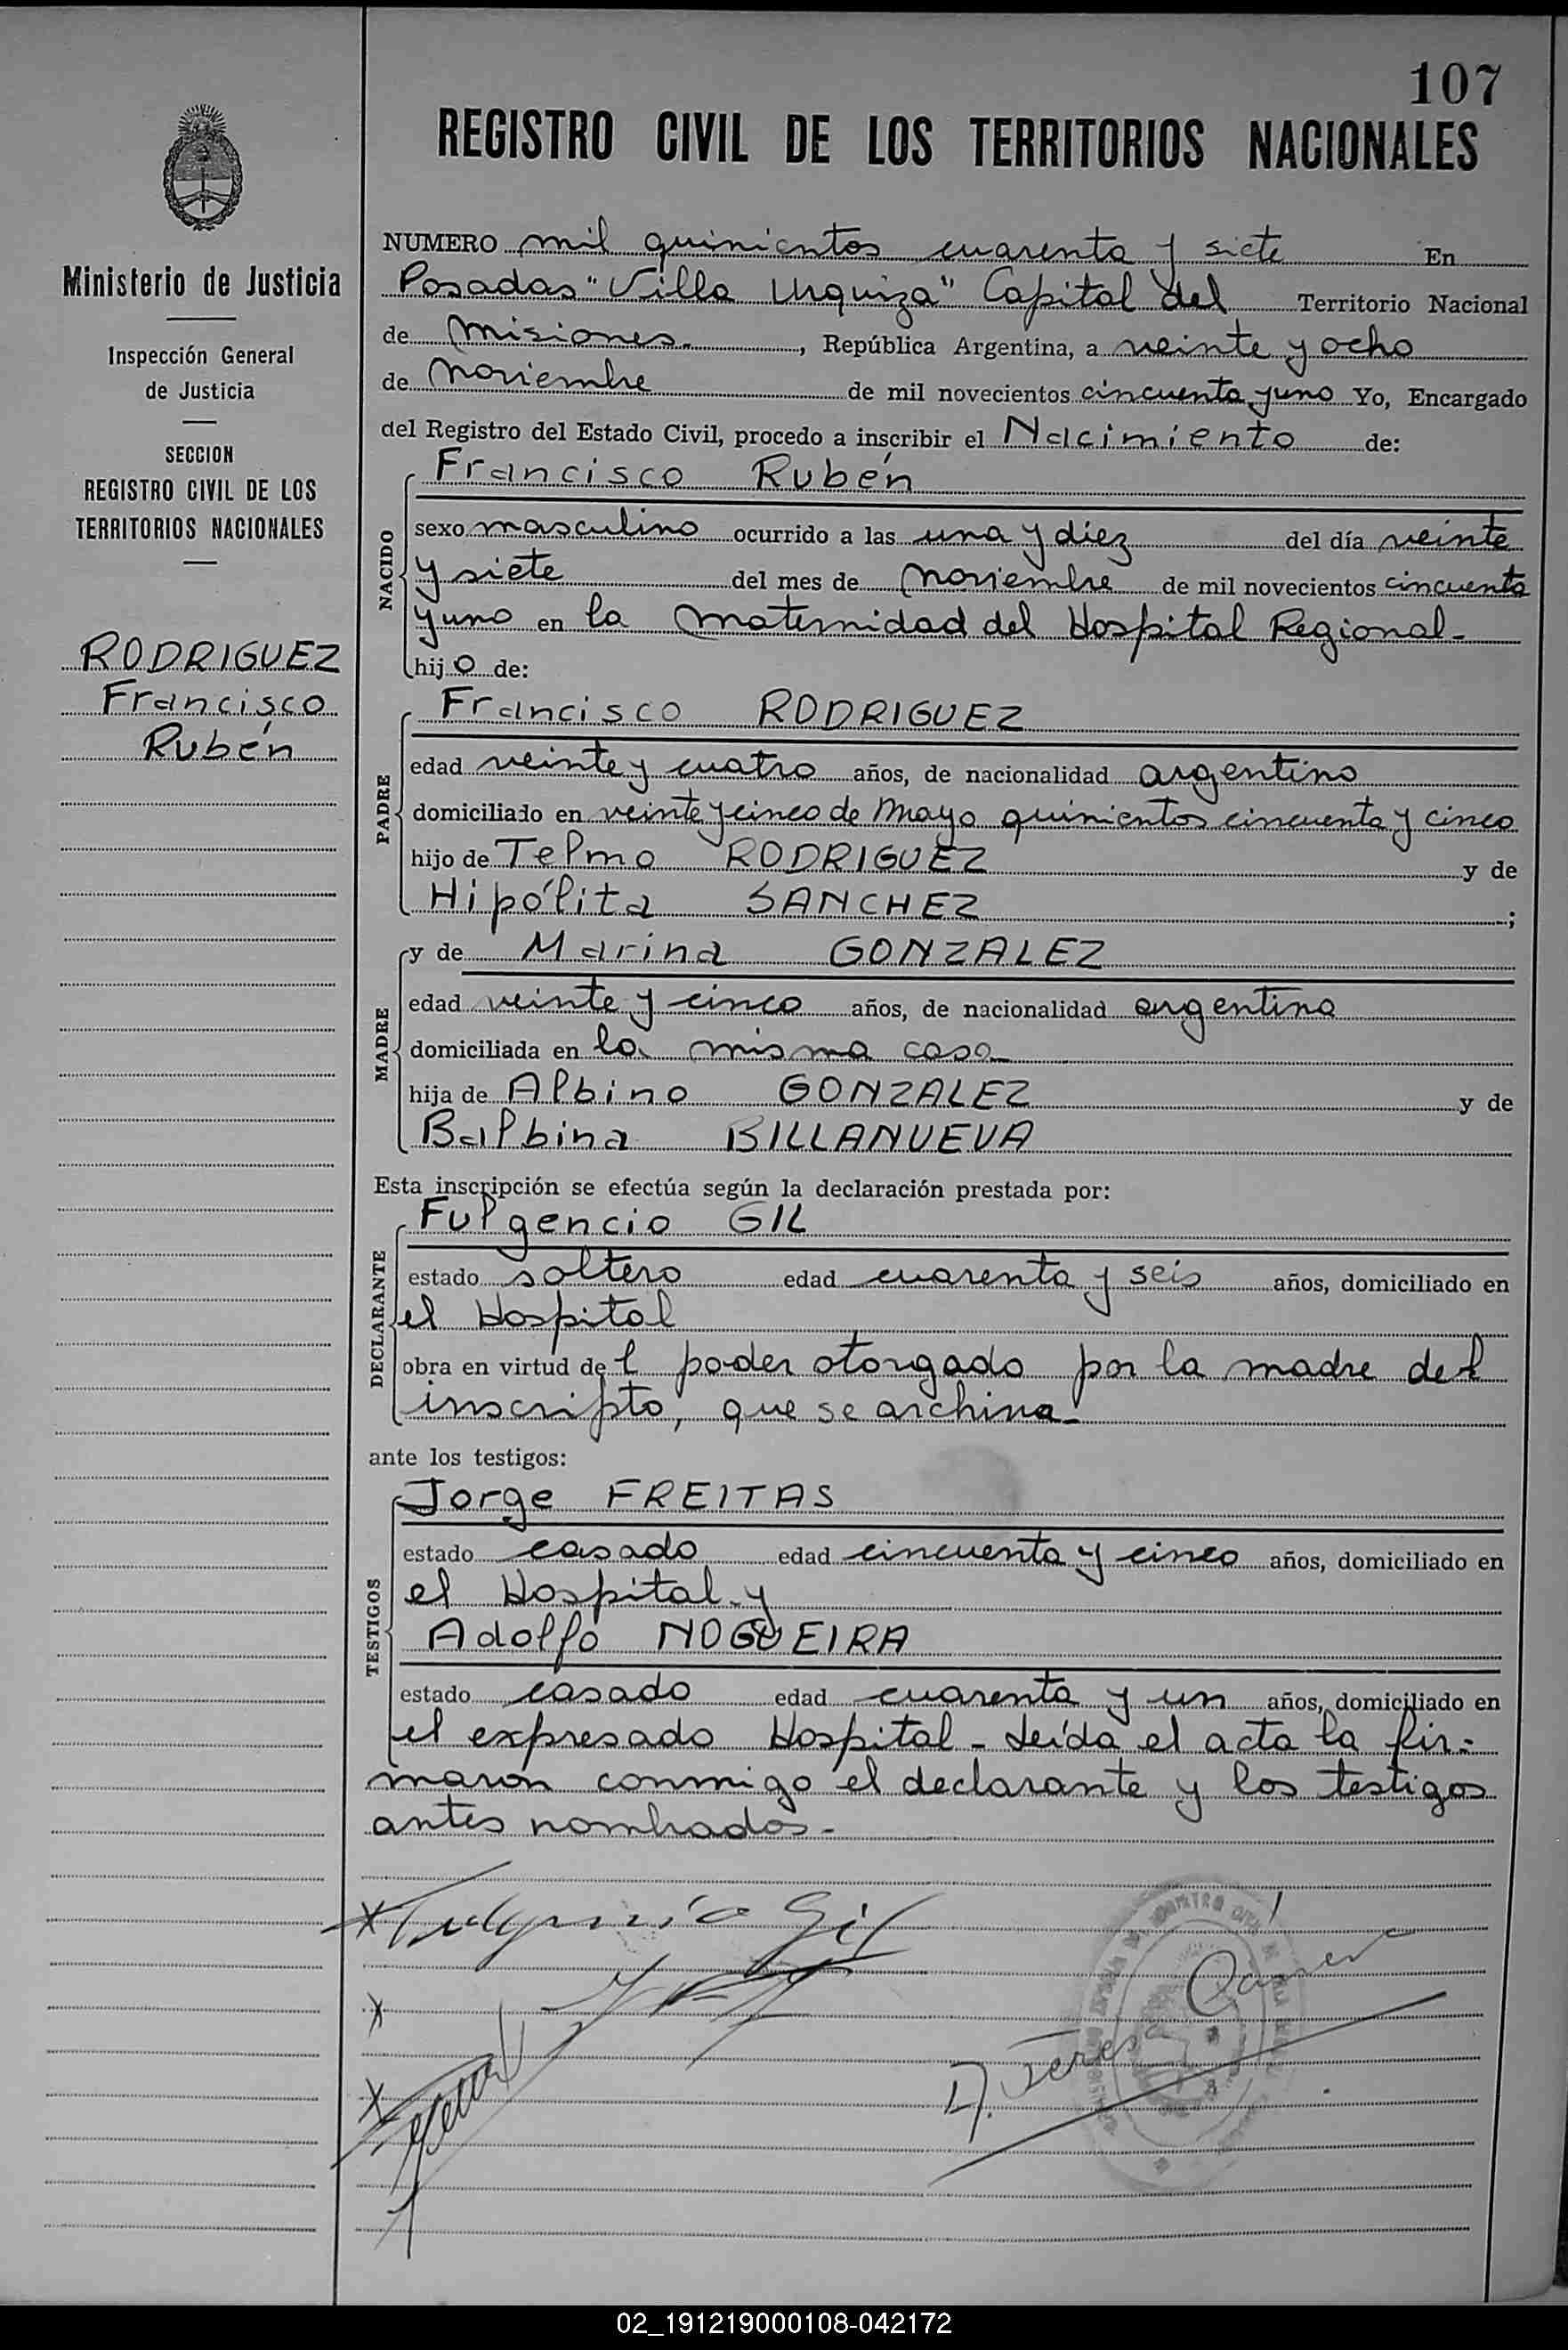 107
REGISTRO CIVIL DE LOS TERRITORIOS NACIONALES
Ministerio de Justicia
Inspección General
de Justicia
SECCION
REGISTRO CIVIL DE LOS
TERRITORIOS NACIONALES
RODRIGUEZ
Francisco
Rubén
NUMERO mil quinientos cuarenta y siete En
Posadas "Villa Urquiza" Capital del Territorio Nacional
de Misiones. , República Argentina, a veinte y ocho
de Noviembre de mil novecientos cincuenta y uno Yo, Encargado
del Registro del Estado Civil, procedo a inscribir el Nacimiento de:
NACIDO
Francisco Rubén
sexo masculino ocurrido a las una y diez del día veinte
y siete del mes de Noviembre de mil novecientos cincuenta
y uno en la Maternidad del Hospital Regional-
hijo de:
PADRE
Francisco RODRIGUEZ
edad veinte y cuatro años, de nacionalidad argentino
domiciliado en veinte y cinco de Mayo quinientos cincuenta y cinco
hijo de Telmo RODRIGUEZ y de
Hipólita SANCHEZ ;
MADRE
y de Marina GONZALEZ
edad veinte y cinco años, de nacionalidad argentina
domiciliada en la misma casa
hija de Albino GONZALEZ y de
Balbina BILLANUEVA
Esta inscripción se efectúa según la declaración prestada por:
DECLARANTE
Fulgencio GIL
estado soltero edad cuarenta y seis años, domiciliado en
el Hospital
obra en virtud del poder otorgado por la madre del
inscripto, que se archiva-
ante los testigos:
TESTIGOS
Jorge FREITAS
estado casado edad cincuenta y cinco años, domiciliado en
el Hospital y
Adolfo NOGUEIRA
estado casado edad cuarenta y un años, domiciliado en
el expresado Hospital - Leída el acta la fir-
maron conmigo el declarante y los testigos
antes nombrados-
Fulgencio Gil
02_191219000108-042172